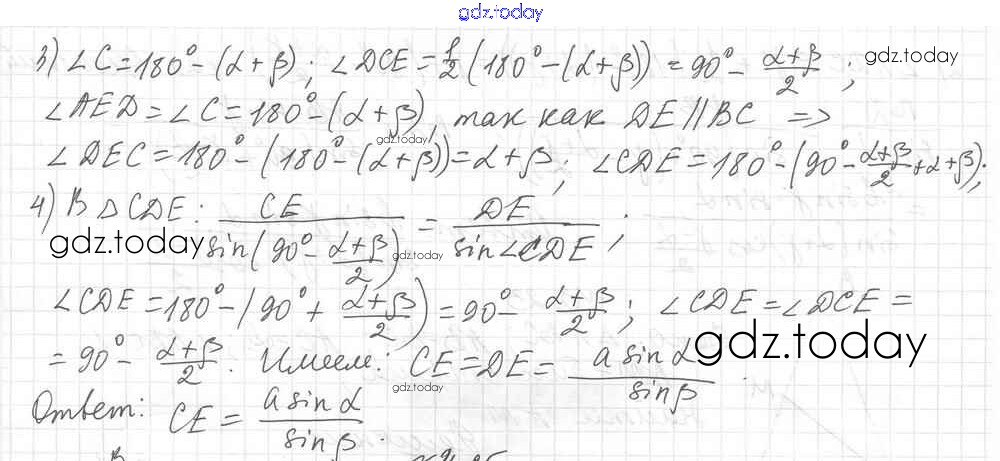 gdz.today
3) ∠C = 180° - (α + β); ∠DCE = 1/2 (180° - (α + β)) = 90° - (α+β)/2;
gdz.today
∠AED = ∠C = 180° - (α + β), так как DE ∥ BC =>
gdz.today
∠DEC = 180° - (180° - (α + β)) = α + β; ∠CDE = 180° - (90° - (α+β)/2 + α + β);
4) В △CDE: CE / sin(90° - (α+β)/2) = DE / sin∠CDE;
gdz.today
gdz.today
∠CDE = 180° - (90° + (α+β)/2) = 90° - (α+β)/2; ∠CDE = ∠DCE =
gdz.today
= 90° - (α+β)/2. Имеем: CE = DE = a sin α / sin β.
gdz.today
Ответ: CE = a sin α / sin β.